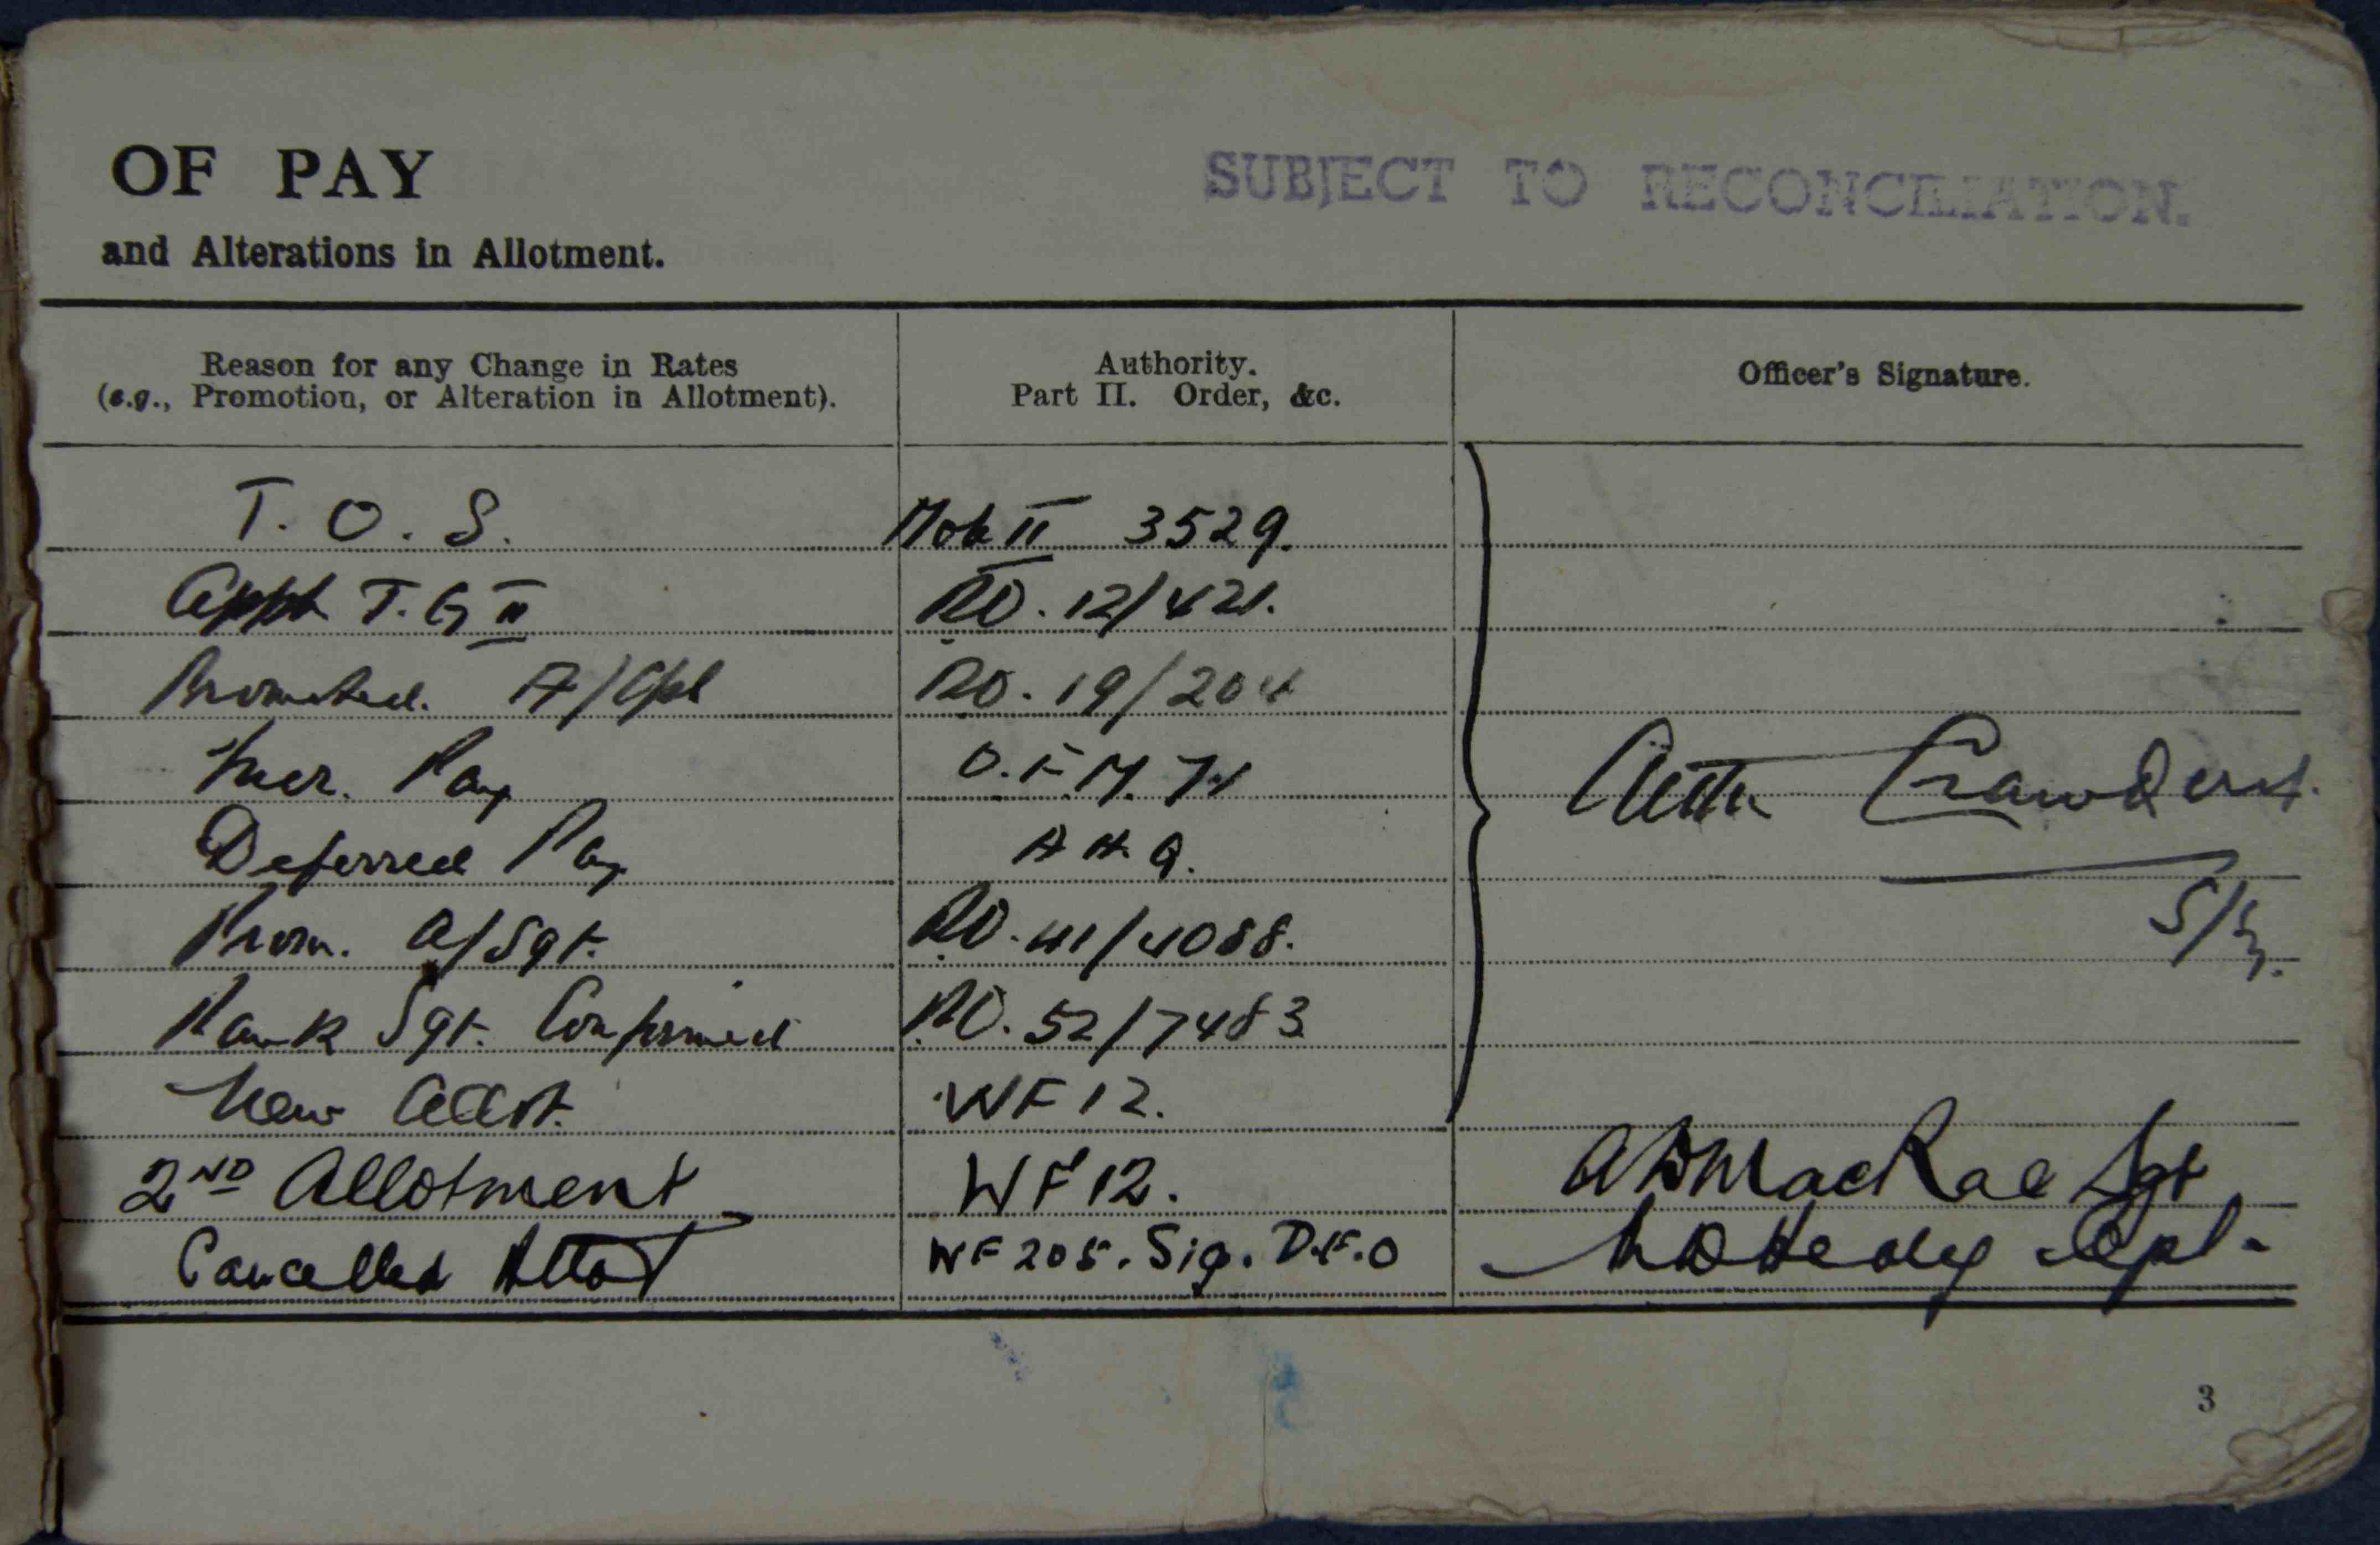 OF PAY
SUBJECT TO RECONCILIATION.
and Alterations in Allotment.
Reason for any Change in Rates
(e.g., Promotion, or Alteration in Allotment).
Authority.
Part II. Order, &c.
Officer's Signature.
T. O. S. Mob II 3529.
Appt T. G II RO. 12/421.
Promoted. A/Cpl RO. 19/204
Incr. Pay O.F.M. 74
Deferred Pay A H Q.
Prom. A/Sgt. RO. 41/4088.
Rank Sgt. Confirmed RO. 52/7483
New Allot. WF 12.
2ND Allotment WF 12. MacRae Sgt
Cancelled Allot WF 205. Sig. D.F.O Cpl.
3